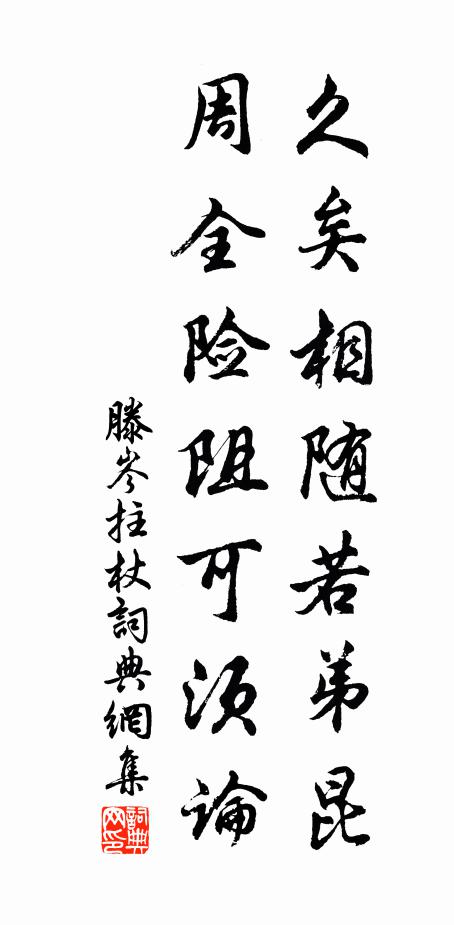 久矣相随若弟昆
周全险阻可须论
滕岑拄杖詞典網集
詞典网印